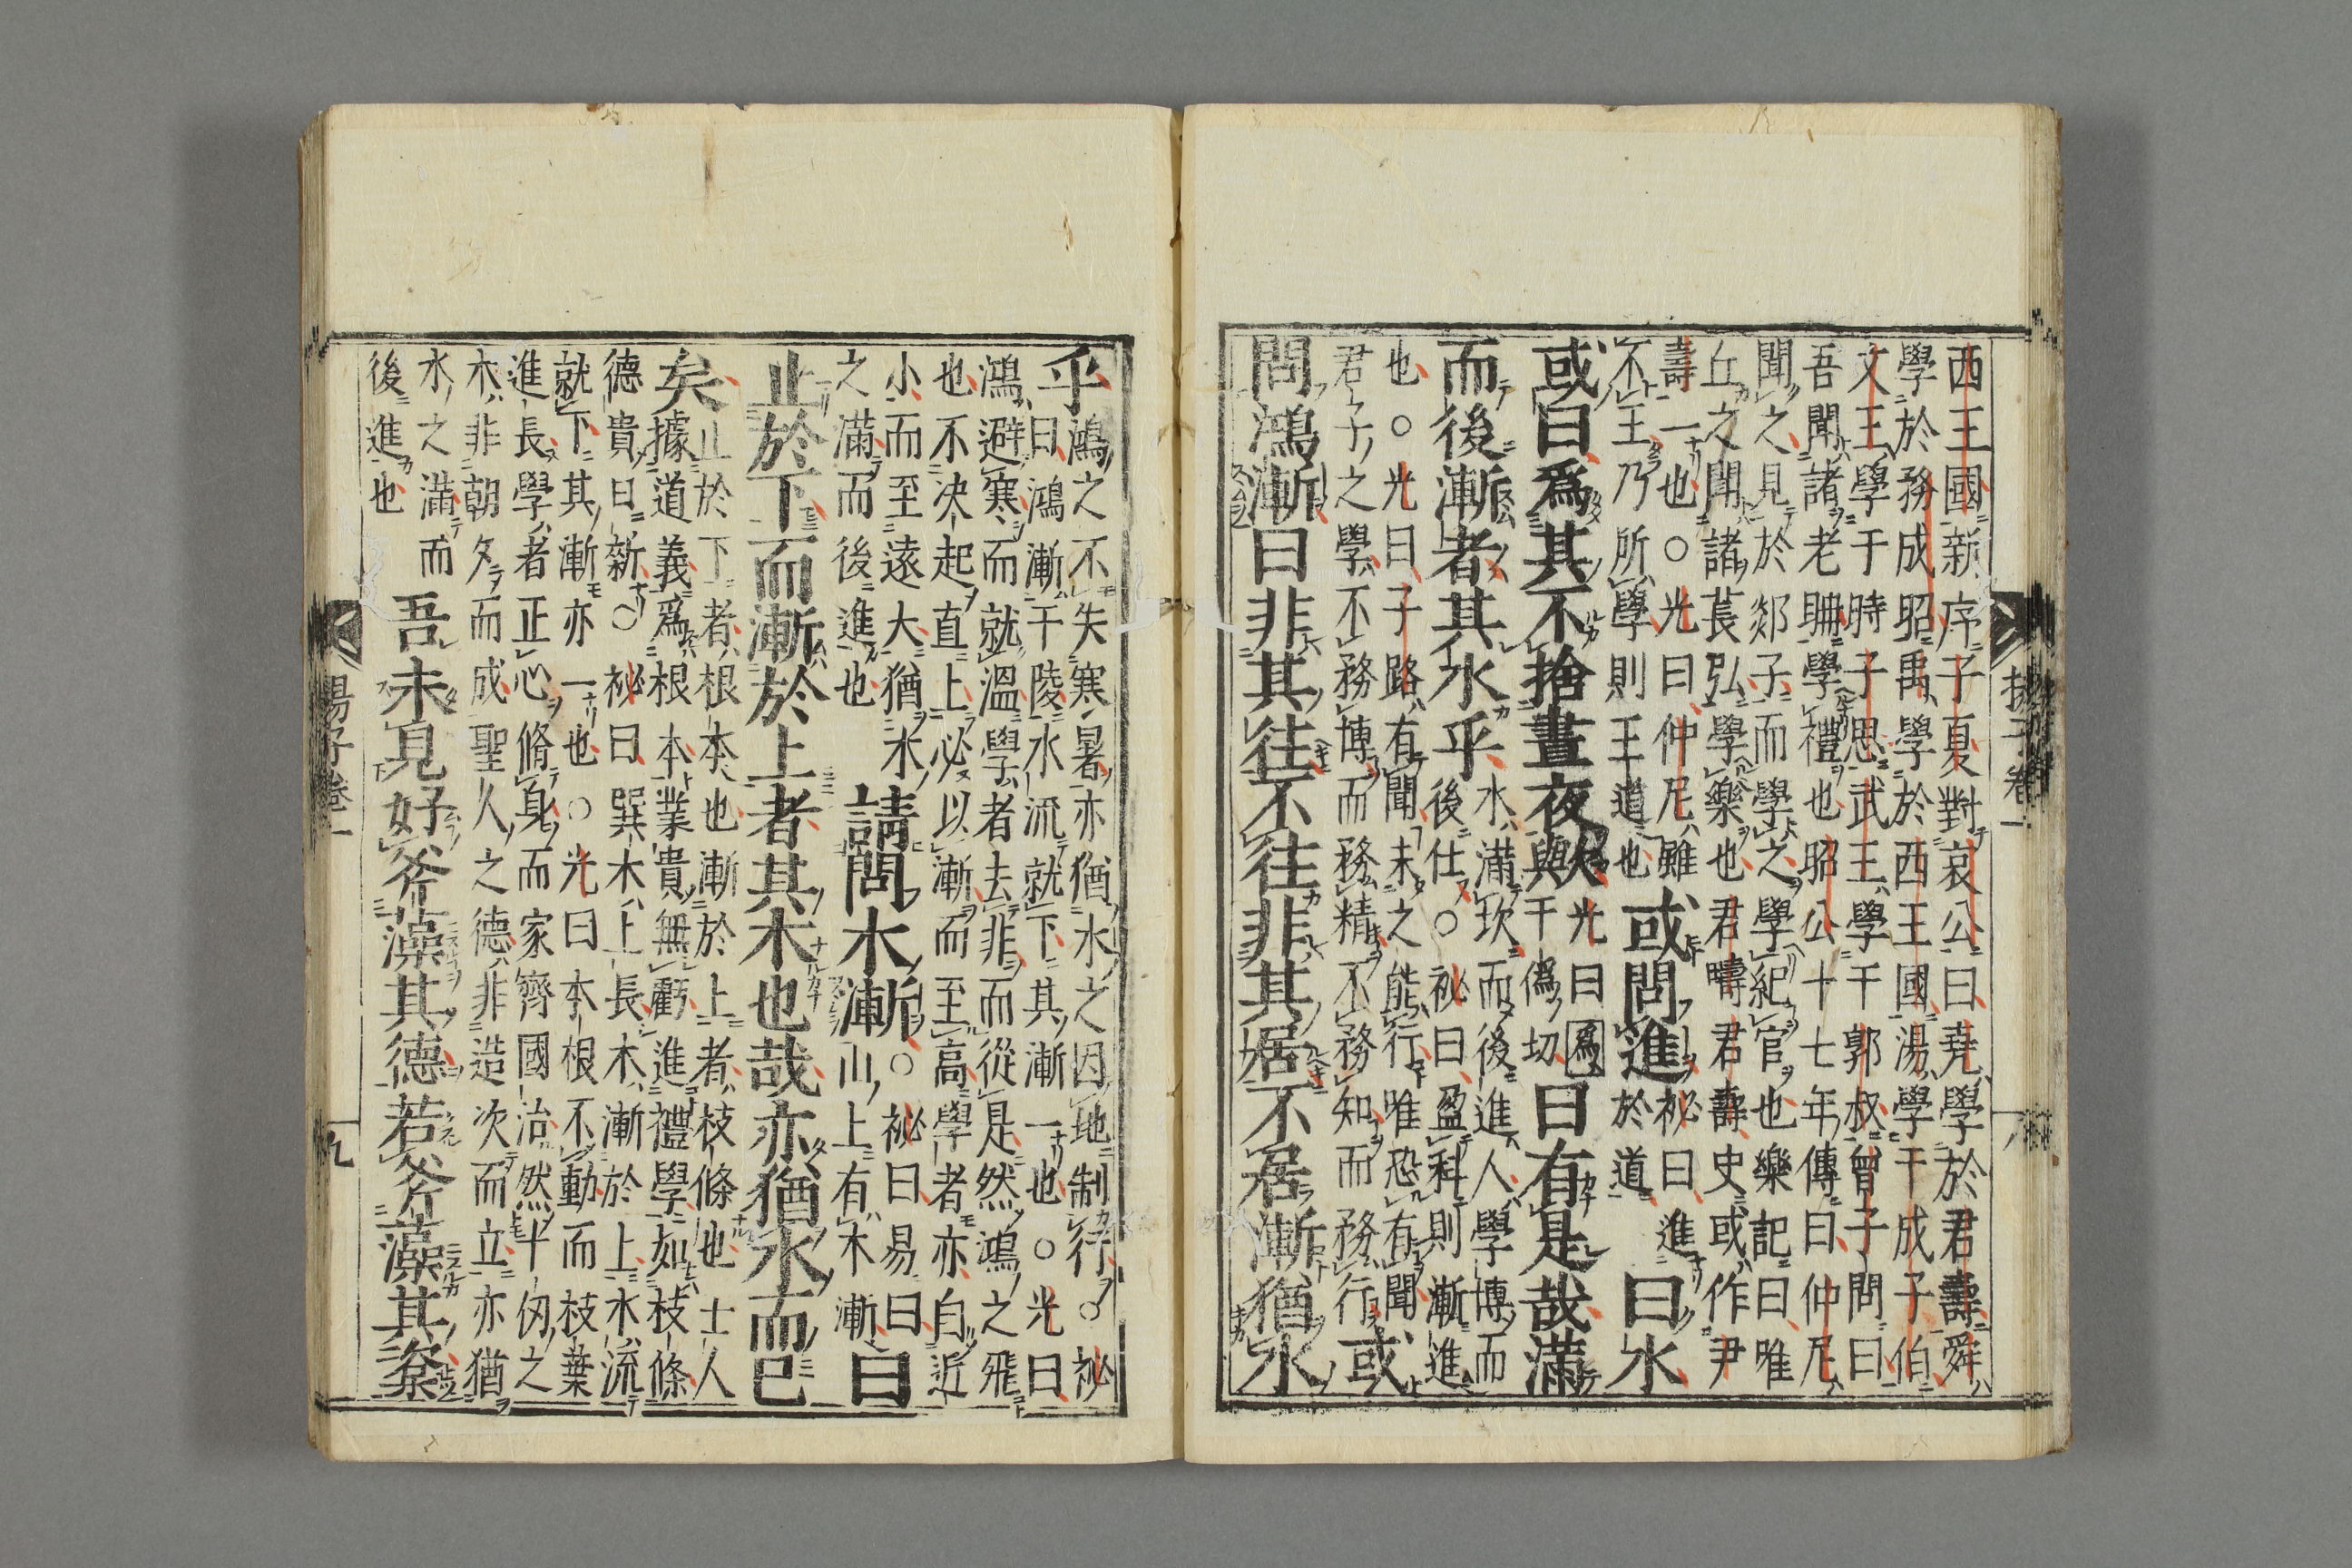 西王國新序子夏對哀公曰堯學於君壽舜
學於務成昭禹學於西王國湯學于成子伯
文王學于時子思武王學于郭叔曾子問曰
吾聞諸老聃學禮也昭公十七年傳曰仲尼
聞之見於郯子而學之學紀官也樂記曰唯
丘之聞諸萇弘學樂也君疇君壽史或作尹
壽一也○光曰仲尼雖
不王乃所學則王道也
或問進
祕曰進
於道
曰水
或曰爲其不捨晝夜歟
光曰爲
與于僞切
曰有是哉滿
而後漸者其水乎
水滿坎而後進人學博而
後仕○祕曰盈科則漸進
也○光曰子路有聞未之能行唯恐有聞
君子之學不務博而務精不務知而務行
或
問鴻漸曰非其往不往非其居不居漸猶水
乎
鴻之不失寒暑亦猶水之因地制行○祕
曰鴻漸于陵水流就下其漸一也○光曰
鴻避寒而就溫學者去非而從是然鴻之飛
也不決起直上必以漸而至高學者亦自近
小而至遠大猶水
之滿而後進也
請問木漸
○祕曰易曰
山上有木漸
曰
止於下而漸於上者其木也哉亦猶水而已
矣
止於下者根本也漸於上者枝條也士人
據道義爲根本業貴無虧進禮學如枝條
德貴日新○祕曰巽木上長木漸於上水流
就下其漸亦一也○光曰本根不動而枝葉
進長學者正心脩身而家齊國治然平仭之
木非朝夕而成聖人之德非造次而立亦猶
水之滿而
後進也
吾未見好斧藻其德若斧藻其楶
揚子卷一
揚子卷一
九